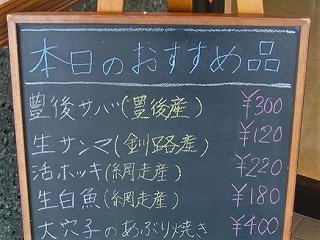 本日のおすすめ品
豊後サバ(豊後産) ¥300
生サンマ(釧路産) ¥120
活ホッキ(網走産) ¥220
生白魚(網走産) ¥180
大穴子のあぶり焼き ¥400